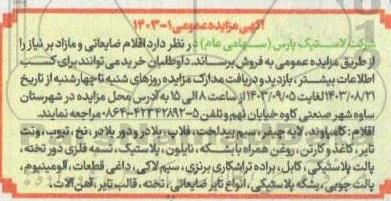 آگهی مزایده عمومی ۱-۱۴۰۳
شرکت لاستیک پارس (سهامی عام) در نظر دارد اقلام ضایعاتی و مازاد بر نیاز را
از طریق مزایده عمومی به فروش برساند. داوطلبان خرید می توانند برای کسب
اطلاعات بیشتر، بازدید و دریافت مدارک مزایده روزهای شنبه تا چهارشنبه از تاریخ
۱۴۰۳/۰۸/۲۱ لغایت ۱۴۰۳/۰۹/۰۵ از ساعت ۸ الی ۱۵ به آدرس محل مزایده در شهرستان
ساوه شهر صنعتی کاوه خیابان نهم و تلفن ۵-۴۲۳۴۲۸۹۳-۰۸۶ مراجعه نمایند.
اقلام: کامپاوند، لایه چیفر، سیم بیدلخت، فلاپ، بلادر و دور بلادر، نخ، تیوب، ونت
تایر، کاغذ و کارتن، روغن همراه با بشکه، نایلون، پلاستیک، تسمه فلزی دور تخته،
پالت پلاستیکی، کابل، براده تراشکاری برنزی، سیم لاکی، داغی قطعات، آلومینیوم،
پالت چوبی، بشکه پلاستیکی، انواع تایر ضایعاتی، تخته، قالب تایر، آهن آلات.